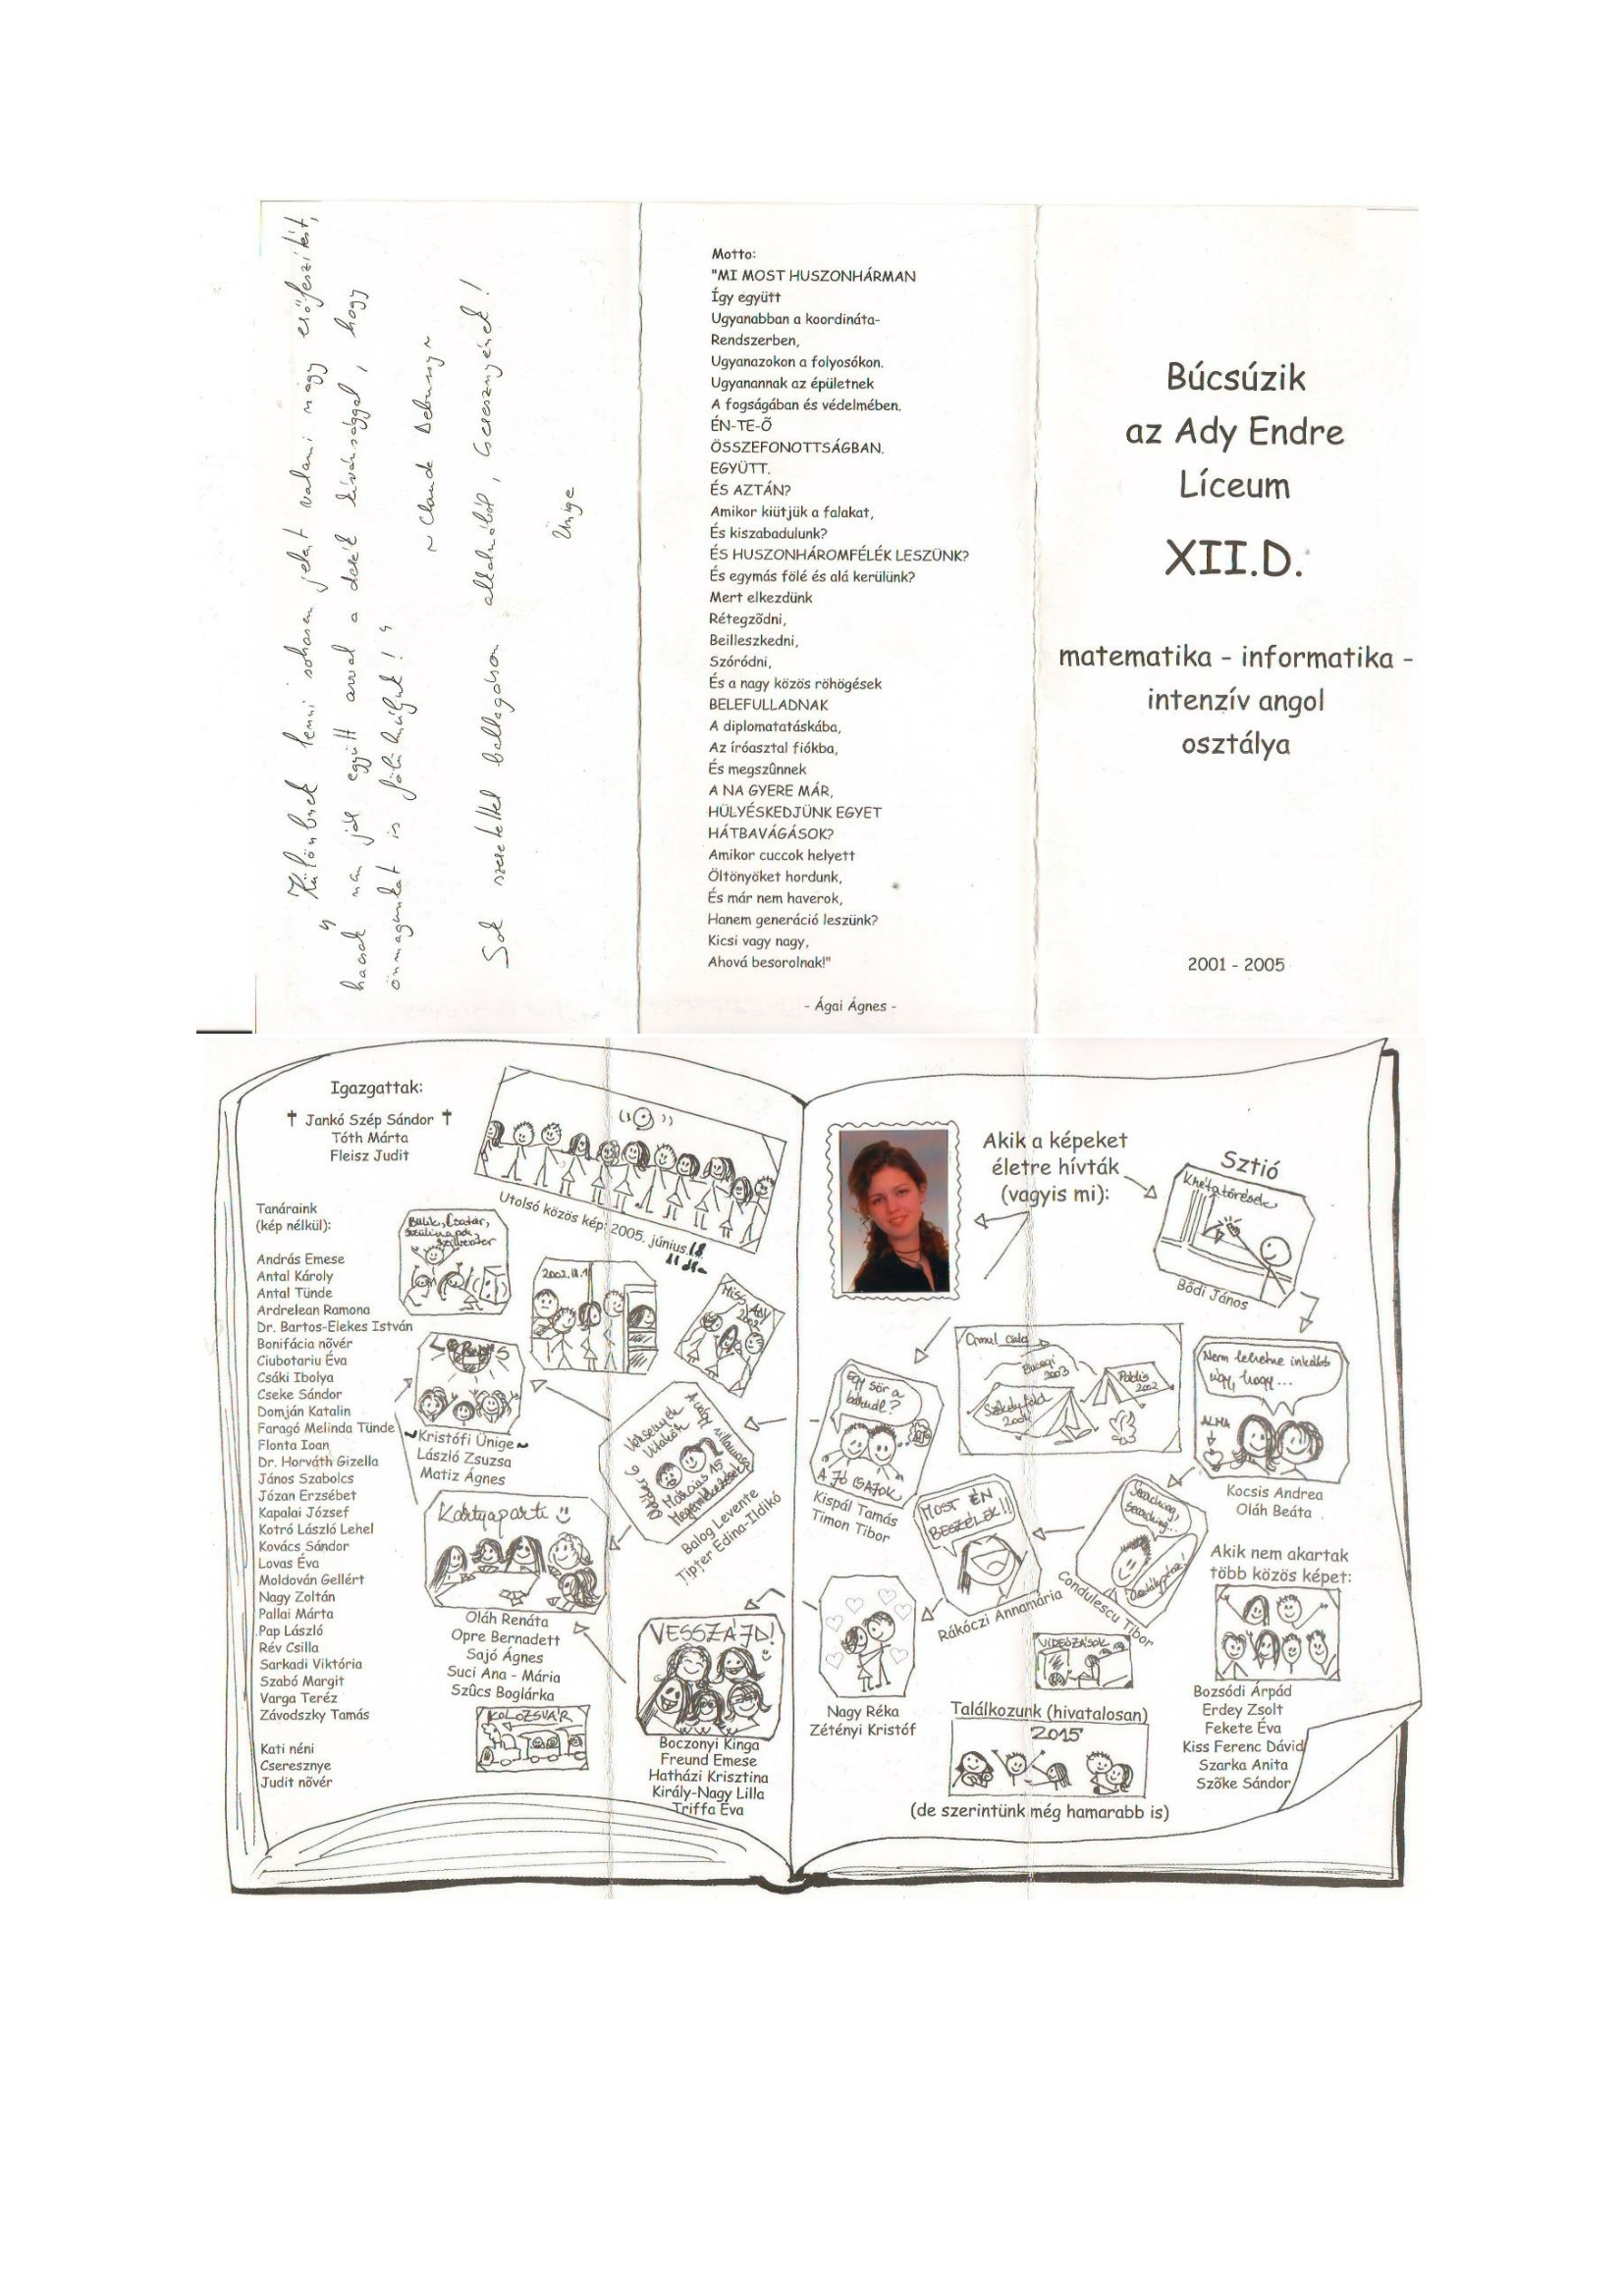 "Különbnek lenni sohasem jelent valami nagy erőfeszítést,
hacsak nem jár együtt avval a derék kívánsággal, hogy
önmagunkat is fölülmúljuk!"
~ Claude Debussy ~
Sok szeretettel ballagásom alkalmából, Cseresznyének!
Ünige
Motto:
"MI MOST HUSZONHÁRMAN
Így együtt
Ugyanabban a koordináta-
Rendszerben,
Ugyanazokon a folyosókon.
Ugyanannak az épületnek
A fogságában és védelmében.
ÉN-TE-Õ
ÖSSZEFONOTTSÁGBAN.
EGYÜTT.
ÉS AZTÁN?
Amikor kiütjük a falakat,
És kiszabadulunk?
ÉS HUSZONHÁROMFÉLÉK LESZÜNK?
És egymás fölé és alá kerülünk?
Mert elkezdünk
Rétegzõdni,
Beilleszkedni,
Szóródni,
És a nagy közös röhögések
BELEFULLADNAK
A diplomatatáskába,
Az íróasztal fiókba,
És megszûnnek
A NA GYERE MÁR,
HÜLYÉSKEDJÜNK EGYET
HÁTBAVÁGÁSOK?
Amikor cuccok helyett
Öltönyöket hordunk,
És már nem haverok,
Hanem generáció leszünk?
Kicsi vagy nagy,
Ahová besorolnak!"
- Ágai Ágnes -
Búcsúzik
az Ady Endre
Líceum
XII.D.
matematika - informatika -
intenzív angol
osztálya
2001 - 2005
Igazgattak:
† Jankó Szép Sándor †
Tóth Márta
Fleisz Judit
Tanáraink
(kép nélkül):
András Emese
Antal Károly
Antal Tünde
Ardrelean Ramona
Dr. Bartos-Elekes István
Bonifácia nõvér
Ciubotariu Éva
Csáki Ibolya
Cseke Sándor
Domján Katalin
Faragó Melinda Tünde
Flonta Ioan
Dr. Horváth Gizella
János Szabolcs
Józan Erzsébet
Kapalai József
Kotró László Lehel
Kovács Sándor
Lovas Éva
Moldován Gellért
Nagy Zoltán
Pallai Márta
Pap László
Rév Csilla
Sarkadi Viktória
Szabó Margit
Varga Teréz
Závodszky Tamás
Kati néni
Cseresznye
Judit nõvér
Utolsó közös kép: 2005. június 18.
11 óra
Bulik, Csatár,
Szülinapok,
Szilveszter
2002.
Miss Ady
2002
~Kristófi Ünige~
László Zsuzsa
Matiz Ágnes
Versenyek
Viták
Március 15
Megemlékezések
Balog Levente
Tipter Edina-Ildikó
Kártyaparti
Oláh Renáta
Opre Bernadett
Sajó Ágnes
Suci Ana - Mária
Szûcs Boglárka
KOLOZSVÁR
VESSZÁJD!
Boczonyi Kinga
Freund Emese
Hatházi Krisztina
Király-Nagy Lilla
Triffa Éva
Akik a képeket
életre hívták
(vagyis mi):
Sztió
Krétatörések
Bõdi János
Omul
Bucegi
2003
Padiş
2002
Székelyföld
2004
Nem lehetne inkább
úgy, hogy...
ALMA
Kocsis Andrea
Oláh Beáta
Egy sör a
A JÓ CSAJOK
Kispál Tamás
Timon Tibor
MOST ÉN
BESZÉLEK!!
Rákóczi Annamária
Searching,
searching...
Condulescu Tibor
Nagy Réka
Zétényi Kristóf
VIDEÓZÁSOK
Akik nem akartak
több közös képet:
Bozsódi Árpád
Erdey Zsolt
Fekete Éva
Kiss Ferenc Dávid
Szarka Anita
Szõke Sándor
Találkozunk (hivatalosan)
2015
(de szerintünk még hamarabb is)